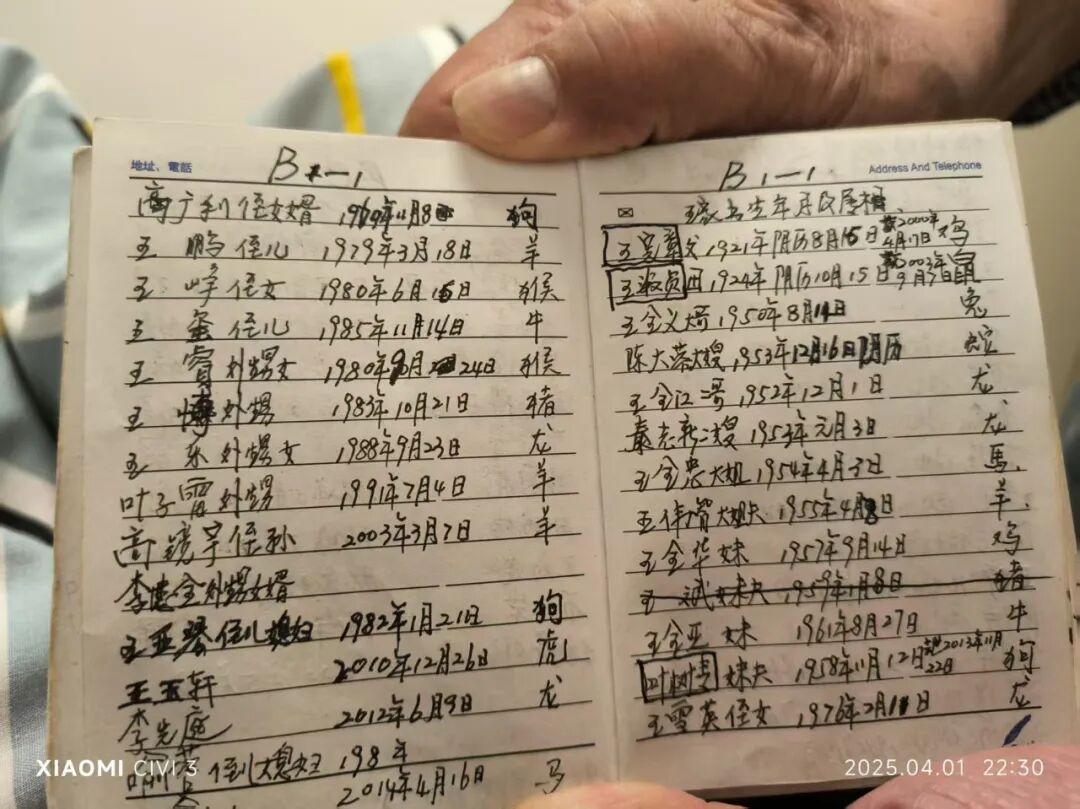 地址、電話
B 一1
高广利侄女婿 1970年11月8 狗
王 鹏侄儿 1979年3月18日 羊
王 峥侄女 1980年6月15日 猴
王 侄儿 1985年11月14日 牛
王 外甥女 1980年9月24日 猴
王 博外甥 1983年10月21日 猪
王 乐外甥女 1988年9月23日 龙
叶子雷外甥 1991年7月4日 羊
高 宇侄孙 2003年3月7日 羊
李 全外甥女婿
王亚琴侄儿媳妇 1982年1月21日 狗
王玉轩 2010年12月26日 虎
李先庭 2012年6月9日 龙
侄儿媳妇 198 年
2014年4月16日 马
Address And Telephone
B 1一1
出生年月及属相
王 父 1921年阴历8月15日 2000年4月17日 鸡
王淑贞 1924年阴历10月15日 2003年9月7日 鼠
王全义大哥 1950年8月1日 兔
陈大蓉大嫂 1953年12月16日阴历 蛇
王全江二哥 1952年12月1日 龙
秦志新二嫂 1953年元月3日 龙
王全忠大姐 1954年4月3日 馬
王伟 大姐夫 1955年4月8日 羊
王全华妹 1957年9月14日 鸡
王 斌妹夫 1959年1月8日 猪
王全亚妹 1961年8月27日 牛
叶树青妹夫 1958年11月12日 2013年11月22日 狗
王雪英侄女 1976年2月1日 龙
XIAOMI CIVI 3
2025.04.01 22:30